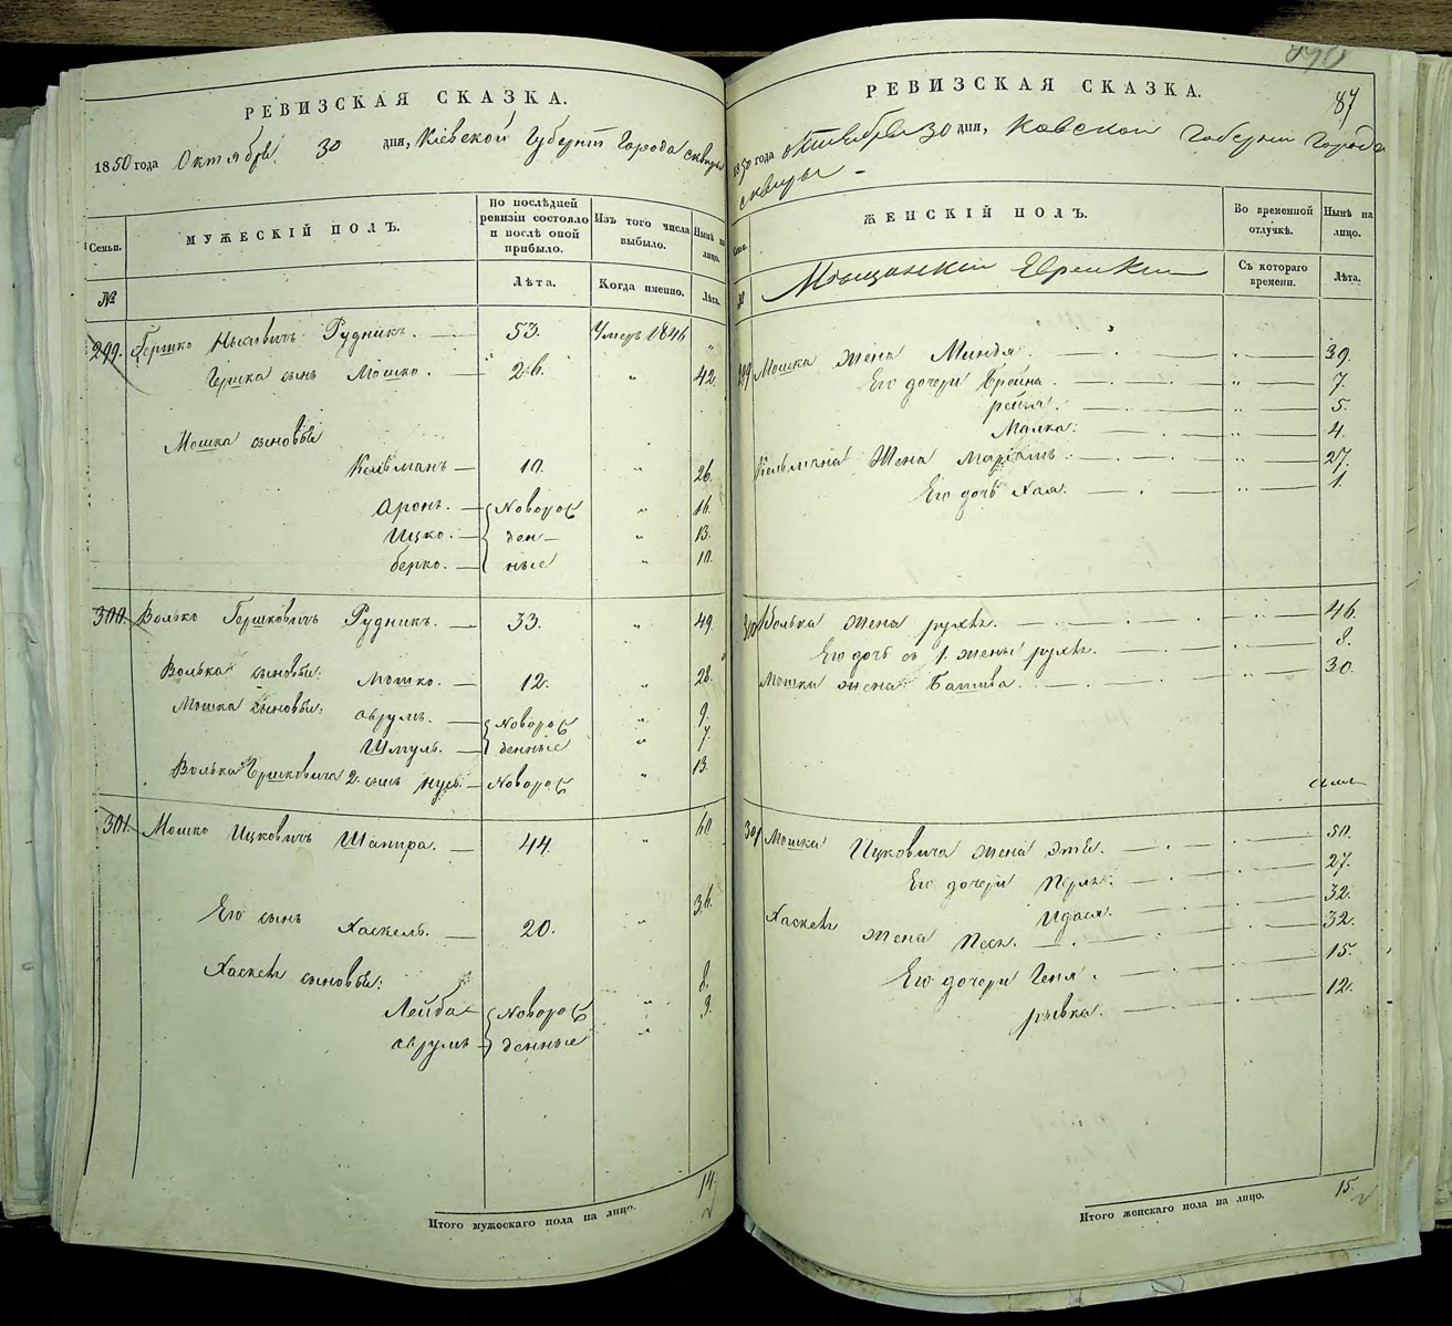 РЕВИЗСКАЯ СКАЗКА.
1850 года Октября 30 дня, Кіевской Губерніи Города Сквиры
Семьи.
МУЖЕСКІЙ ПОЛЪ.
По послѣдней ревизіи состояло и послѣ оной прибыло.
Изъ того числа выбыло.
Нынѣ на лицо.
№
Лѣта.
Когда именно.
Лѣта.
299. Гершко Рудникъ. — 53. Умеръ 1846 „
Гершка сынъ Мошко. — 26. „ 42
Мошка сыновья
Кельманъ — 10. „ 26.
Аронъ. — Новорож „ 16.
Ицко. — ден— „ 13.
Берко. — ные „ 10.
300. Волько Гершковичъ Рудникъ. — 33. „ 49
Волька сыновья: Мошко. — 12. „ 28.
Мошка сыновья: Аврумъ. — Новорож „ 9.
Шмуль. — денные „ 7.
Волька Гершковича 2. сынъ — Новорож „ 13.
301. Мошко Ицковичъ Шапира. — 44. „ 60
Его сынъ Хаскель. — 20. „ 36.
Хаскеля сыновья:
Лейба — Новорож „ 8.
Аврумъ — денные „ 9.
Итого мужескаго пола на лицо. 14.
87
РЕВИЗСКАЯ СКАЗКА.
1850 года Октября 30 дня, Кіевской Губерніи Города
Сквиры —
ЖЕНСКІЙ ПОЛЪ.
Во временной отлучкѣ.
Нынѣ на лицо.
№
Мѣщанскіи Евреики
Съ котораго времени.
Лѣта.
299 Мошка жена Миндля. — „ — 39.
Его дочери Брейна. — „ — 7.
Рейзя. — „ — 5.
Малка. — „ — 4.
Кельмана жена Маріамъ. — „ — 27.
Его дочь Хая. — „ — 1.
300 Волька жена Рухля. — „ — 46.
Его дочь съ 1. жены Рухля. — „ — 8.
Мошка жена Батшва. — „ — 30.
301 Мошка Ицковича жена Этя. — 50.
Его дочери Перля. — 27.
Идася. — 32.
Хаскеля жена Песя. — 32.
Его дочери Геня. — 15.
Рывка. — 12.
Итого женскаго пола на лицо. 15.